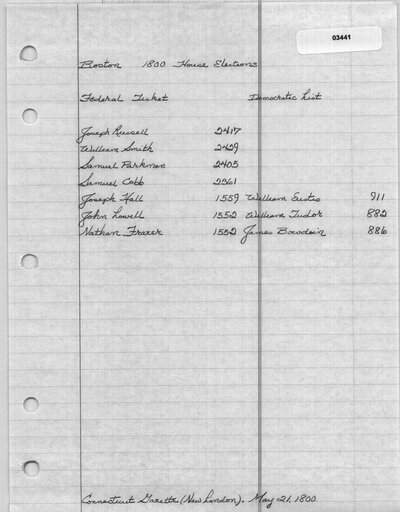 03441
Boston 1800 House Elections
Federal Ticket Democratic List
Joseph Russell 2417
William Smith 2429
Samuel Parkman 2405
Samuel Cobb 2361
Joseph Hall 1559 William Eustis 911
John Lowell 1552 William Tudor 882
Nathan Frazer 1552 James Bowdoin 886
Connecticut Gazette (New London). May 21, 1800.